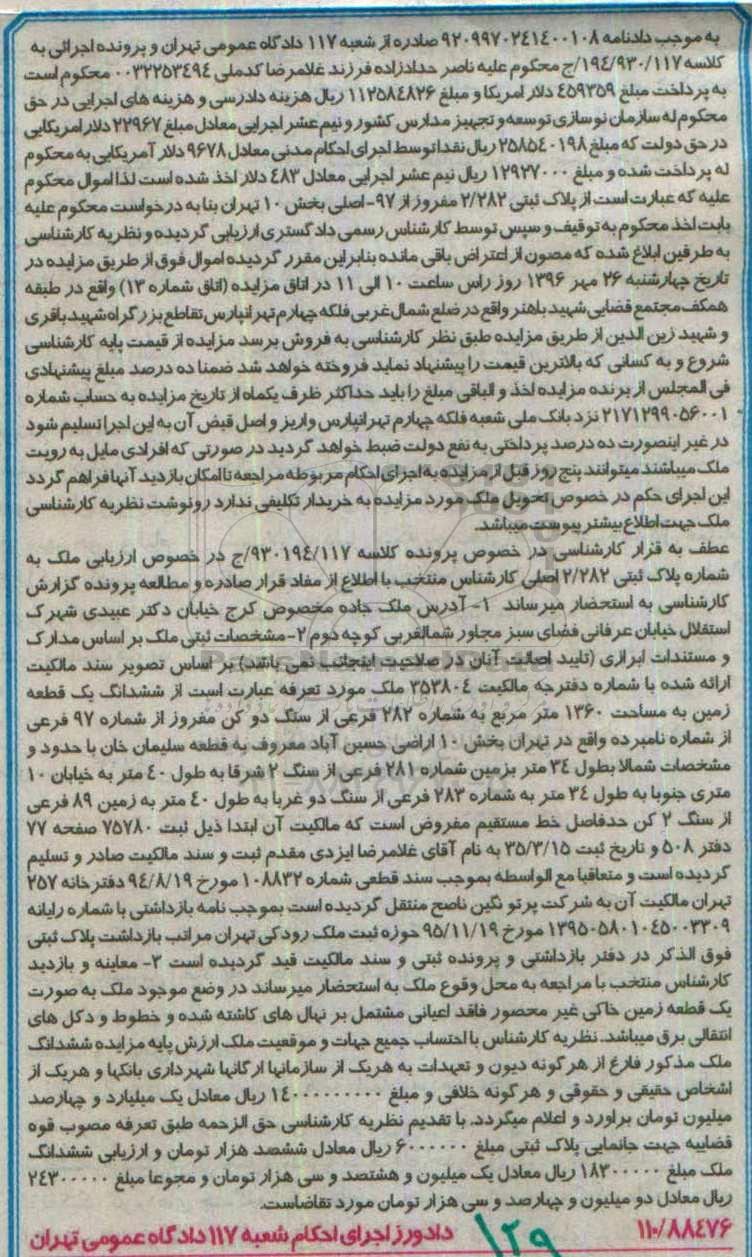 به موجب دادنامه ۹۲۰۹۹۷۰۲۴۱۴۰۰۱۰۸ صادره از شعبه ۱۱۷ دادگاه عمومی تهران و پرونده اجرائی به
کلاسه ۱۹۴/۹۳۰/۱۱۷/ج محکوم علیه ناصر حدادزاده فرزند غلامرضا کدملی ۰۰۳۲۲۵۳۴۹۴ محکوم است
به پرداخت مبلغ ۴۵۹۳۵۹ دلار امریکا و مبلغ ۱۱۲۵۸۴۸۲۶ ریال هزینه دادرسی و هزینه های اجرایی در حق
محکوم له سازمان نوسازی توسعه و تجهیز مدارس کشور و نیم عشر اجرایی معادل مبلغ ۲۲۹۶۷ دلار امریکایی
در حق دولت که مبلغ ۲۵۸۵۴۰۱۹۸ ریال نقدا توسط اجرای احکام مدنی معادل ۹۶۷۸ دلار آمریکایی به محکوم
له پرداخت شده و مبلغ ۱۲۹۲۷۰۰۰ ریال نیم عشر اجرایی معادل ۴۸۳ دلار اخذ شده است لذا اموال محکوم
علیه که عبارت است از پلاک ثبتی ۲/۲۸۲ مفروز از ۹۷-اصلی بخش ۱۰ تهران بنا به درخواست محکوم علیه
بابت اخذ محکوم به توقیف و سپس توسط کارشناس رسمی دادگستری ارزیابی گردیده و نظریه کارشناسی
به طرفین ابلاغ شده که مصون از اعتراض باقی مانده بنابراین مقرر گردیده اموال فوق از طریق مزایده در
تاریخ چهارشنبه ۲۶ مهر ۱۳۹۶ روز راس ساعت ۱۰ الی ۱۱ در اتاق مزایده (اتاق شماره ۱۳) واقع در طبقه
همکف مجتمع قضایی شهید باهنر واقع در ضلع شمال غربی فلکه چهارم تهرانپارس تقاطع بزرگراه شهید باقری
و شهید زین الدین از طریق مزایده طبق نظر کارشناسی به فروش برسد مزایده از قیمت پایه کارشناسی
شروع و به کسانی که بالاترین قیمت را پیشنهاد نماید فروخته خواهد شد ضمنا ده درصد مبلغ پیشنهادی
فی المجلس از برنده مزایده اخذ و الباقی مبلغ را باید حداکثر ظرف یکماه از تاریخ مزایده به حساب شماره
۲۱۷۱۲۹۹۰۵۶۰۰۱ نزد بانک ملی شعبه فلکه چهارم تهرانپارس واریز و اصل قبض آن به این اجرا تسلیم شود
در غیر اینصورت ده درصد پرداختی به نفع دولت ضبط خواهد گردید در صورتی که افرادی مایل به رویت
ملک میباشند میتوانند پنج روز قبل از مزایده به اجرای احکام مربوطه مراجعه تا امکان بازدید آنها فراهم گردد
این اجرای حکم در خصوص تحویل ملک مورد مزایده به خریدار تکلیفی ندارد رونوشت نظریه کارشناسی
ملک جهت اطلاع بیشتر پیوست میباشد.
عطف به قرار کارشناسی در خصوص پرونده کلاسه ۹۳۰۱۹۴/۱۱۷/ج در خصوص ارزیابی ملک به
شماره پلاک ثبتی ۲/۲۸۲ اصلی کارشناس منتخب با اطلاع از مفاد قرار صادره و مطالعه پرونده گزارش
کارشناسی به استحضار میرساند ۱- آدرس ملک جاده مخصوص کرج خیابان دکتر عبیدی شهرک
استقلال خیابان عرفانی فضای سبز مجاور شمالغربی کوچه دوم ۲-مشخصات ثبتی ملک بر اساس مدارک
و مستندات ابرازی (تایید اصالت آنان در صلاحیت اینجانب نمی باشد) بر اساس تصویر سند مالکیت
ارائه شده با شماره دفترچه مالکیت ۳۵۳۸۰۴ ملک مورد تعرفه عبارت است از ششدانگ یک قطعه
زمین به مساحت ۱۳۶۰ متر مربع به شماره ۲۸۲ فرعی از سنگ دو کن مفروز از شماره ۹۷ فرعی
از شماره نامبرده واقع در تهران بخش ۱۰ اراضی حسین آباد معروف به قطعه سلیمان خان با حدود و
مشخصات شمالا بطول ۳۴ متر بزمین شماره ۲۸۱ فرعی از سنگ ۲ شرقا به طول ۴۰ متر به خیابان ۱۰
متری جنوبا به طول ۳۴ متر به شماره ۲۸۳ فرعی از سنگ دو غربا به طول ۴۰ متر به زمین ۸۹ فرعی
از سنگ ۲ کن حدفاصل خط مستقیم مفروض است که مالکیت آن ابتدا ذیل ثبت ۷۵۷۸۰ صفحه ۷۷
دفتر ۵۰۸ و تاریخ ثبت ۳۵/۳/۱۵ به نام آقای غلامرضا ایزدی مقدم ثبت و سند مالکیت صادر و تسلیم
گردیده است و متعاقبا مع الواسطه بموجب سند قطعی شماره ۱۰۸۸۳۲ مورخ ۹۴/۸/۱۹ دفترخانه ۲۵۷
تهران مالکیت آن به شرکت پرتو نگین ناصح منتقل گردیده است بموجب نامه بازداشتی با شماره رایانه
۱۳۹۵۰۵۸۰۱۰۴۵۰۰۳۳۰۹ مورخ ۹۵/۱۱/۱۹ حوزه ثبت ملک رودکی تهران مراتب بازداشت پلاک ثبتی
فوق الذکر در دفتر بازداشتی و پرونده ثبتی و سند مالکیت قید گردیده است ۳- معاینه و بازدید
کارشناس منتخب با مراجعه به محل وقوع ملک به استحضار میرساند در وضع موجود ملک به صورت
یک قطعه زمین خاکی غیر محصور فاقد اعیانی مشتمل بر نهال های کاشته شده و خطوط و دکل های
انتقالی برق میباشد. نظریه کارشناس با احتساب جمیع جهات و موقعیت ملک ارزش پایه مزایده ششدانگ
ملک مذکور فارغ از هر گونه دیون و تعهدات به هریک از سازمانها ارگانها شهرداری بانکها و هریک از
اشخاص حقیقی و حقوقی و هر گونه خلافی و مبلغ ۱۴۰۰۰۰۰۰۰۰۰ ریال معادل یک میلیارد و چهارصد
میلیون تومان براورد و اعلام میگردد. با تقدیم نظریه کارشناسی حق الزحمه طبق تعرفه مصوب قوه
قضاییه جهت جانمایی پلاک ثبتی مبلغ ۶۰۰۰۰۰۰ ریال معادل ششصد هزار تومان و ارزیابی ششدانگ
ملک مبلغ ۱۸۳۰۰۰۰۰ ریال معادل یک میلیون و هشتصد و سی هزار تومان و مجوعا مبلغ ۲۴۳۰۰۰۰۰
ریال معادل دو میلیون و چهارصد و سی هزار تومان مورد تقاضاست.
۱۱۰/۸۸۴۷۶ دادورز اجرای احکام شعبه ۱۱۷ دادگاه عمومی تهران
۱۲۹